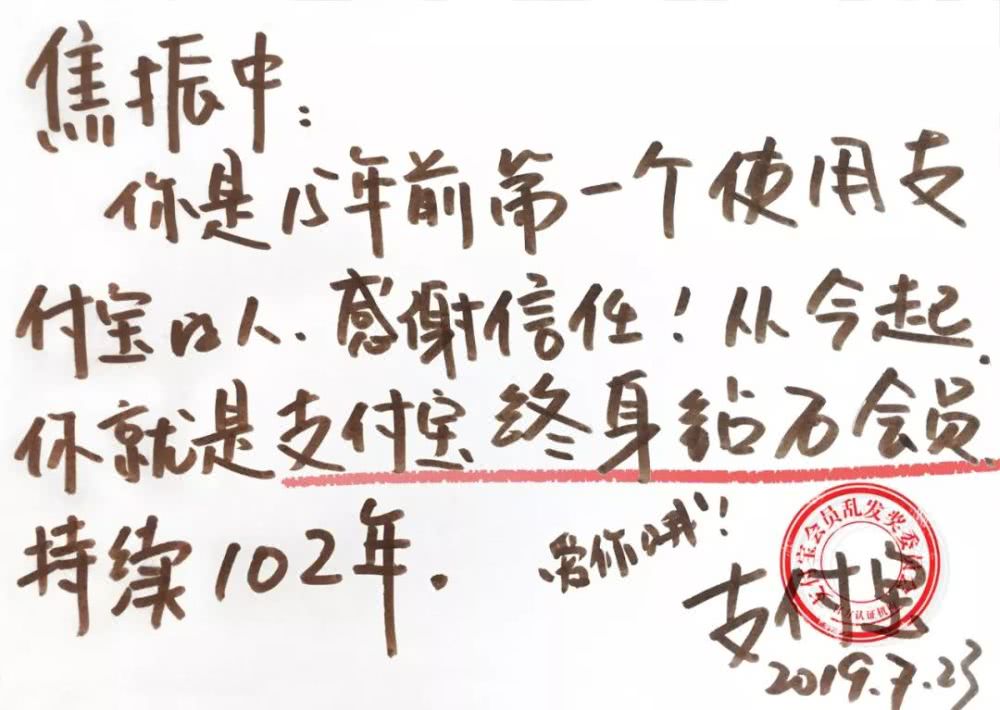 焦振中:
你是15年前第一个使用支
付宝的人.感谢信任!从今起.
你就是支付宝终身钻石会员.
持续102年.
爱你哦!
支付宝会员乱发奖委员会
官方认证机构
支付宝
2019.7.23